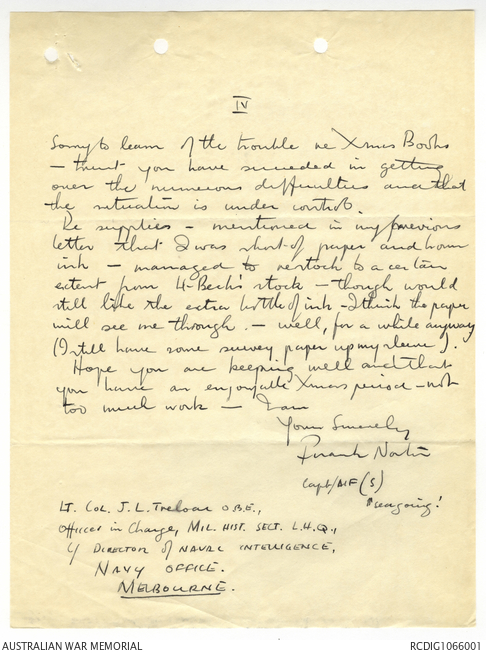 IV
Sorry to learn of the trouble re Xmas Books
- trust you have succeeded in getting
over the numerous difficulties and that
the situation is under control.
Re supplies - mentioned in my previous
letter that I was short of paper and brown
ink - managed to restock to a certain
extent from Lt Beck's stock - though would
still like the extra bottle of ink - I think the paper
will see me through. - well, for a while anyway
(I still have some survey paper up my sleeve).
Hope you are keeping well and that
you have an enjoyable Xmas period - not
too much work - I am
Yours Sincerely
Frank Norton
Capt/AIF (S)
seagoing!
Lt. Col. J. L. Treloar O.B.E.,
Officer in Charge, Mil. Hist. Sect. L.H.Q.,
c/ Director of Naval Intelligence,
Navy Office.
Melbourne.
AUSTRALIAN WAR MEMORIAL
RCDIG1066001